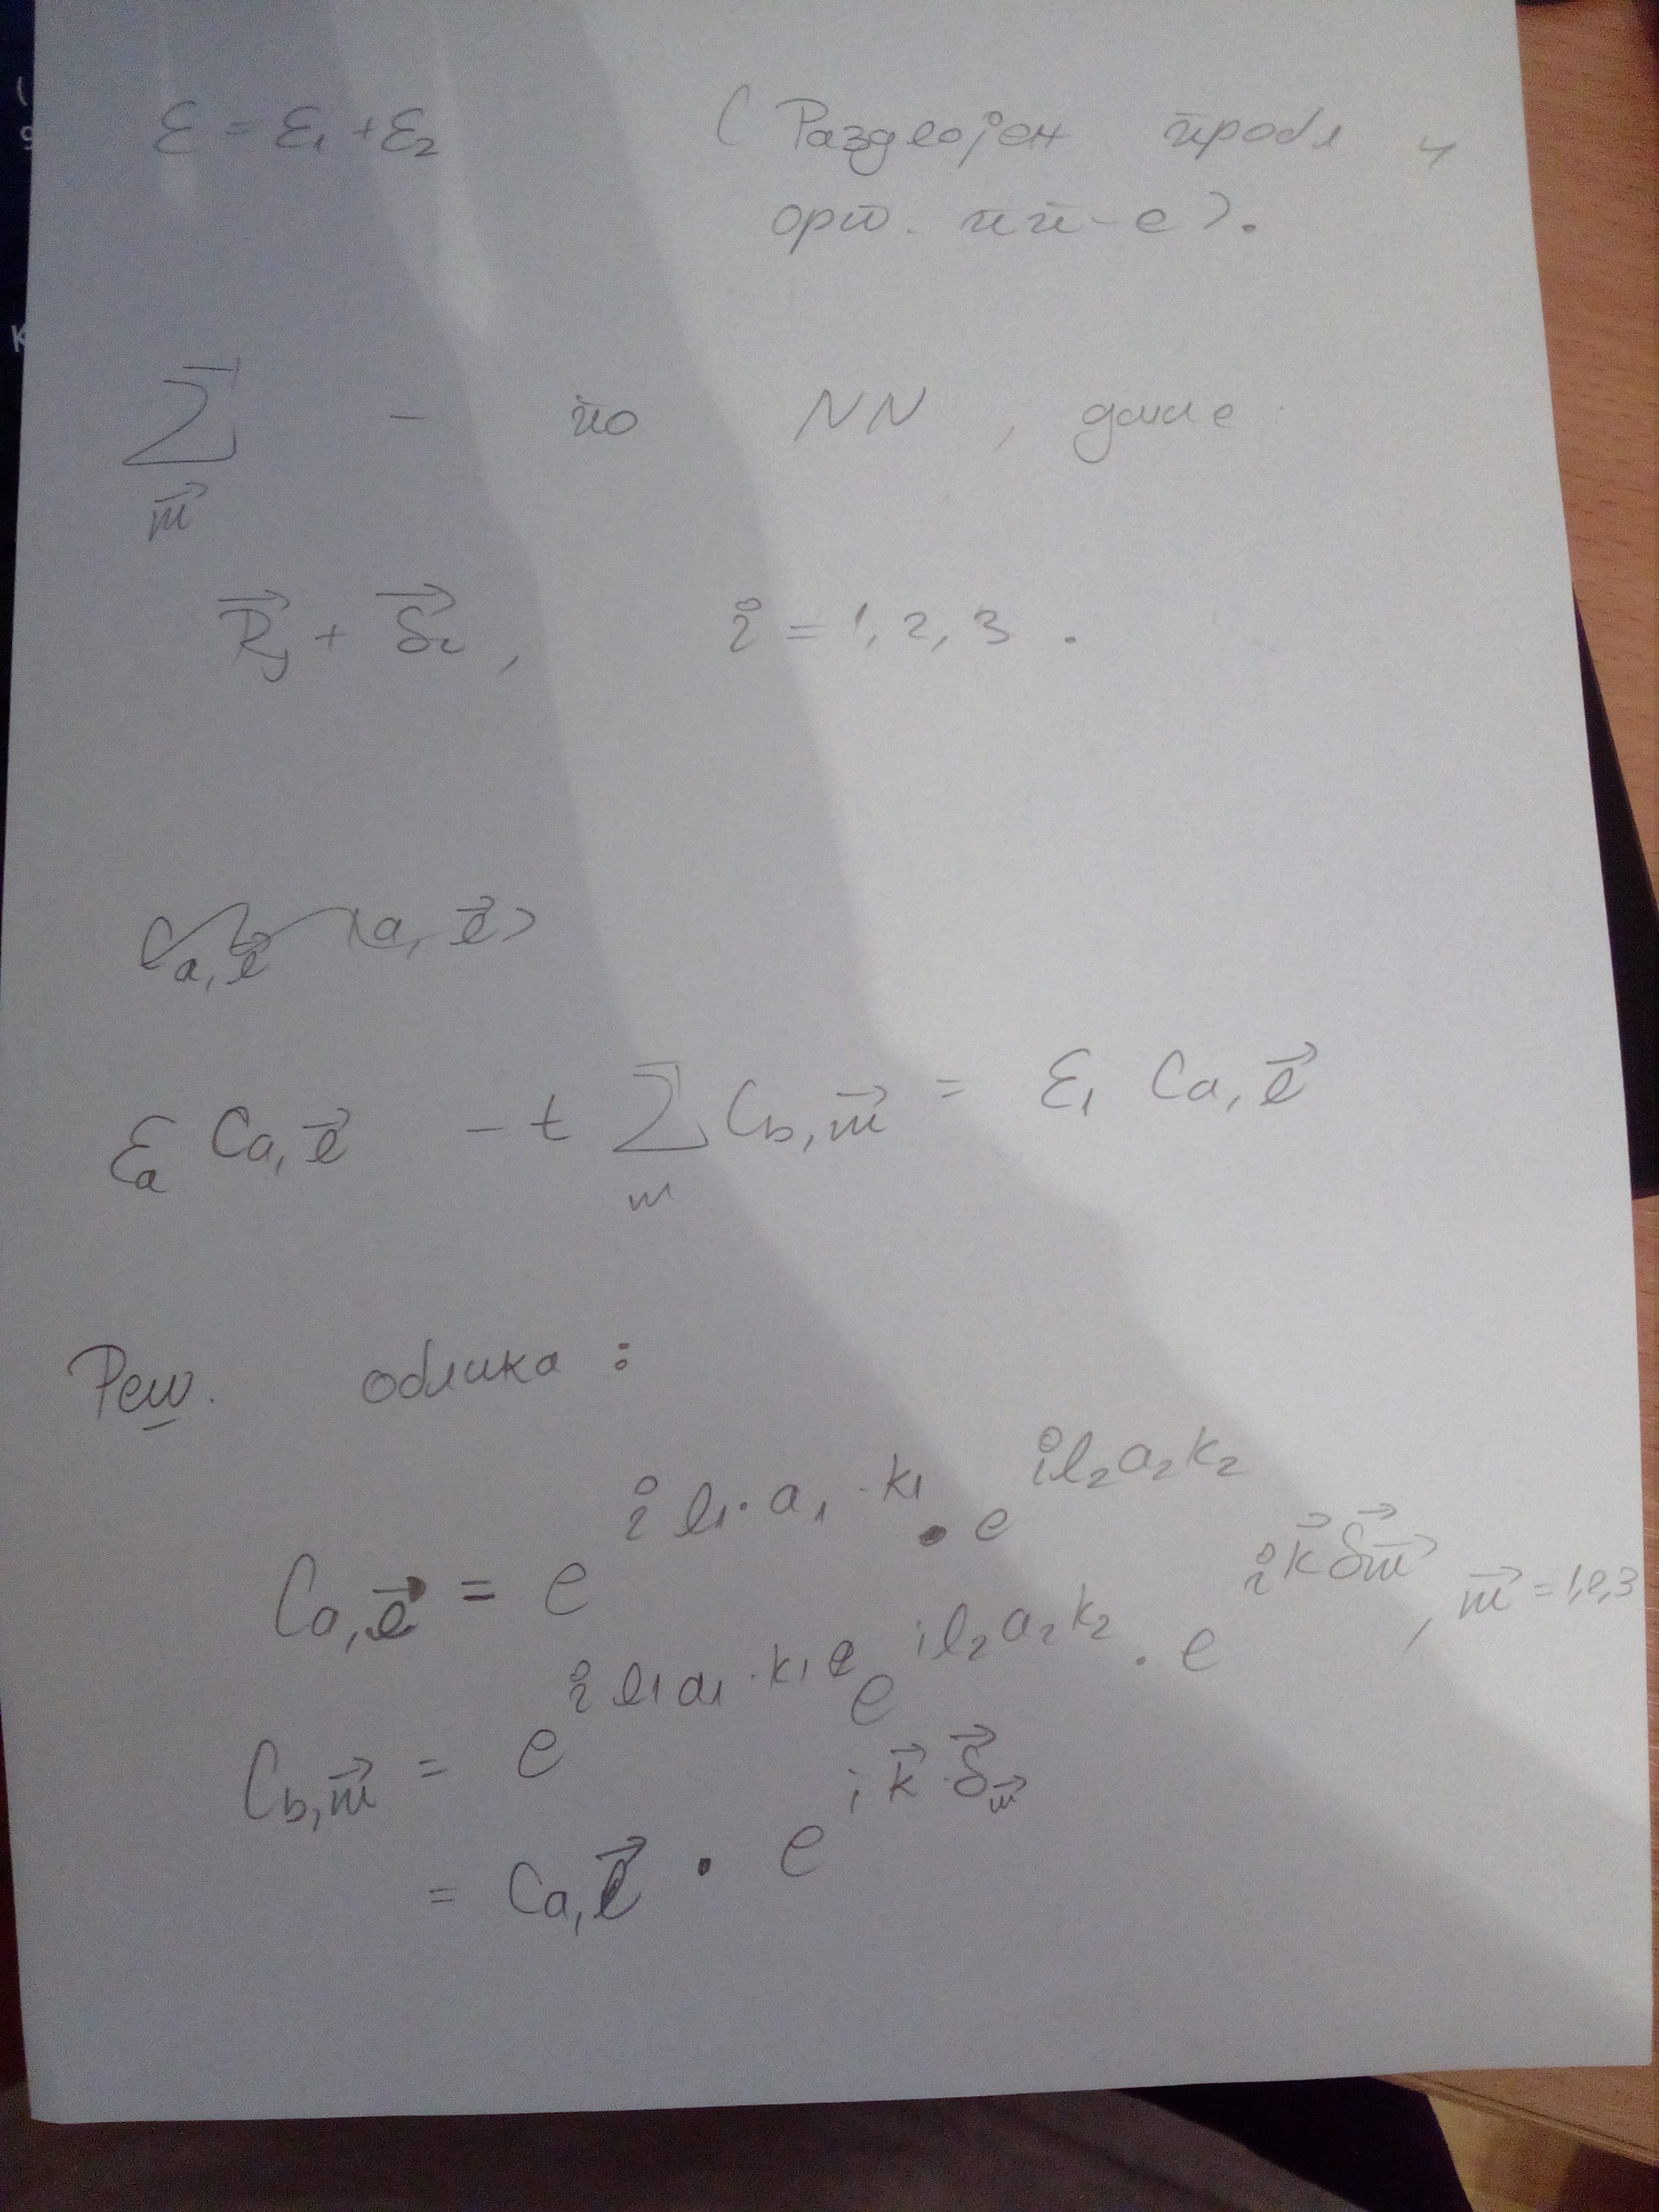 ε = ε₁ + ε₂ (Раздвојен пробл у
орт. пп-е).
∑ - по NN, дакле:
m⃗
R⃗ⱼ + δ⃗ᵢ, i = 1, 2, 3.
C a,l⃗ |a, l⃗>
εₐ C a,l⃗ - t ∑ C b,m⃗ = ε₁ C a,l⃗
m
Реш. облика:
C a,l⃗ = e^{i l₁·a₁·k₁} · e^{i l₂a₂k₂}
C b,m⃗ = e^{i l₁a₁·k₁} e^{i l₂a₂k₂} · e^{i k⃗ δ⃗m⃗}, m⃗ = 1,2,3
= C a,l⃗ · e^{i k⃗·δ⃗m⃗}